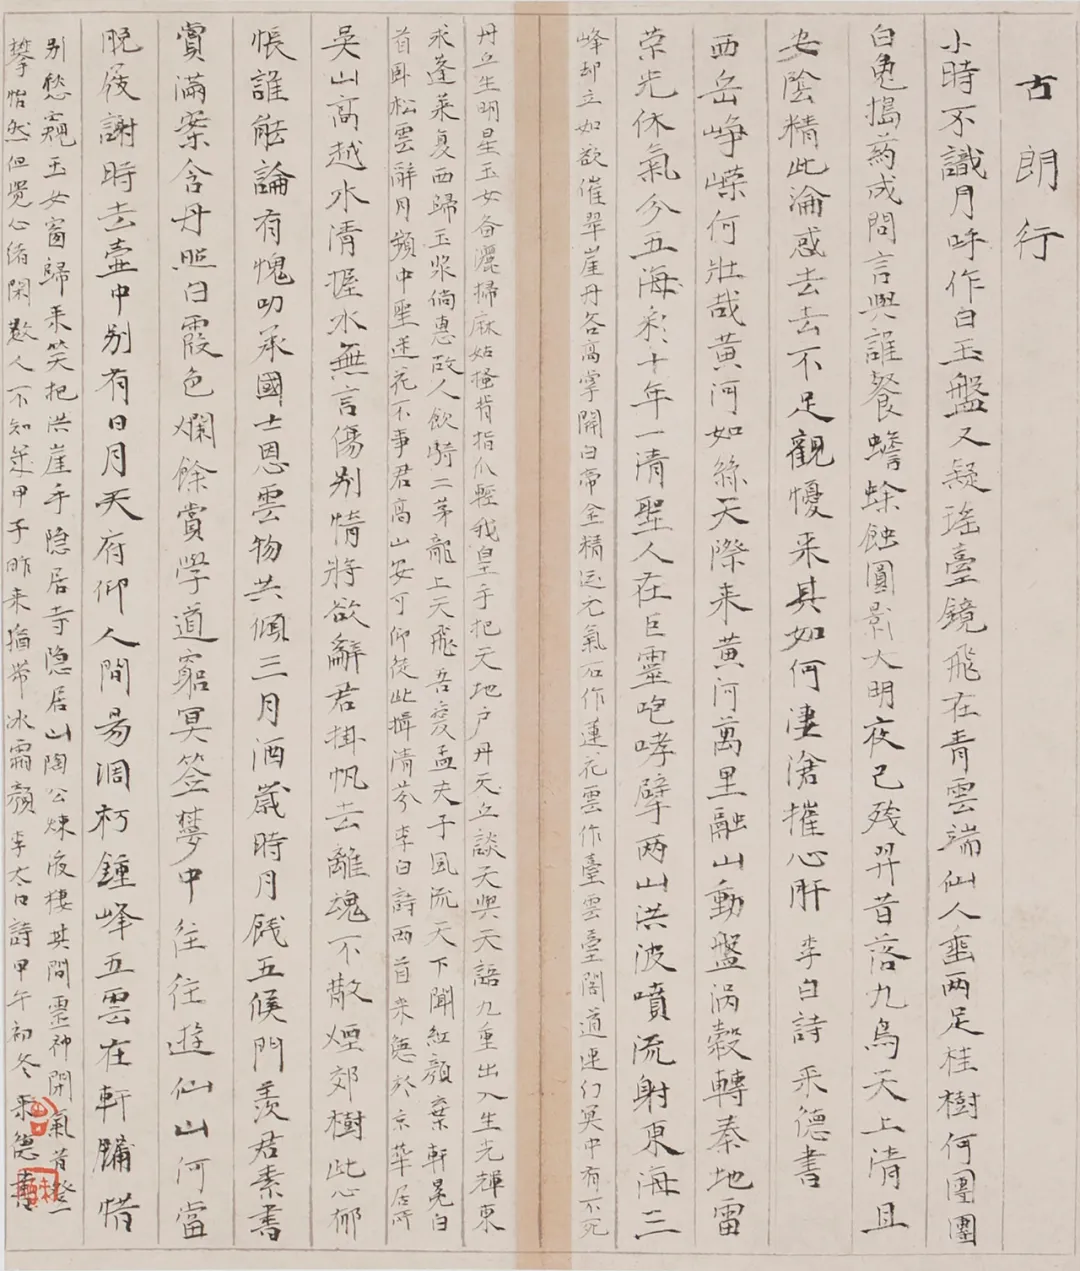 古朗行
小時不識月呼作白玉盤又疑瑤臺鏡飛在青雲端仙人垂两足桂樹何團團
白兔搗药成問言與誰餐蟾蜍蝕圓影大明夜已残羿昔落九烏天上清且
安陰精此淪惑去去不足觀憂来其如何淒滄摧心肝 李白詩 采德書
西岳崢嶸何壮哉黄河如絲天際来黄河萬里融山動盤涡轂轉秦地雷
荣光休氣分五海彩十年一清聖人在巨靈咆哮擘两山洪波噴流射東海三
峰却立如欲催翠崖丹各高掌開白帝金精运元氣石作蓮花雲作臺雲臺閣道连幻冥中有不死
丹丘生明星玉女备灑掃麻姑搔背指爪輕我皇手把天地户丹天丘談天與天語九重出入生光輝東
求蓬莱复西歸玉浆倘惠故人飲騎二茅龍上天飛吾爱孟夫子風流天下聞紅顏棄軒冕白
首卧松雲醉月頻中聖迷花不事君高山安可仰徒此揖清芬李白詩两首采德於京華居所
吴山高越水清握水無言傷别情將欲辭君掛帆去離魂不散煙郊樹此心郁
悵誰能論有愧叨承國士恩雲物共傾三月酒歲時月餞五侯門羡君素書
賞滿案含丹照白霞色爛餘赏学道窮冥筌夢中往往遊仙山何當
脱屐謝時去壷中别有日月天府仰人間易凋朽鍾峰五雲在軒牖惜
别愁窺玉女窗歸来笑把洪崖手隐居寺隐居山陶公煉液棲其間靈神閉氣昔登
攀怡然但觉心绪閑數人不知几甲子昨来猶带冰霜顏 李太白詩甲午初冬 采德書